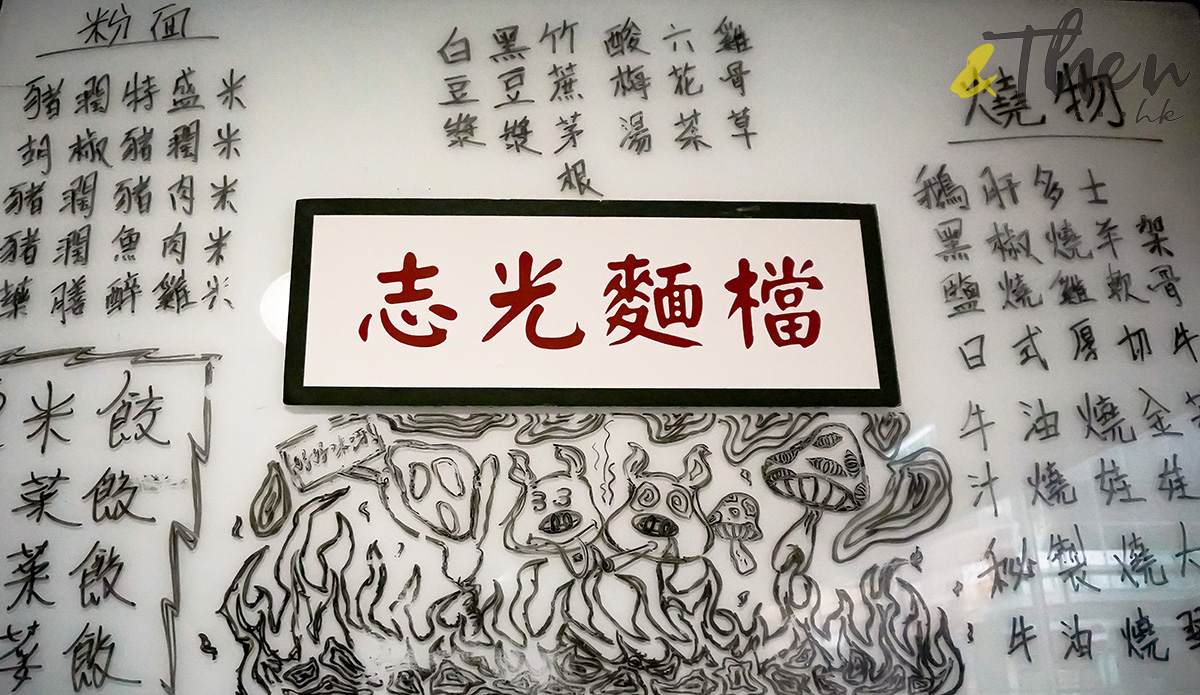 粉面
豬潤特盛米
胡椒豬潤米
豬潤豬肉米
豬潤魚肉米
藥膳醉雞米
米餃
菜餃
菜餃
菜餃
白豆漿
黑豆漿
竹蔗茅根
酸梅湯
六花茶
雞骨草
志光麵檔
&Then
.hk
燒物
鵝肝多士
黑椒燒羊架
鹽燒雞軟骨
日式厚切牛
牛油燒金
汁燒娃娃
秘製燒大
牛油燒